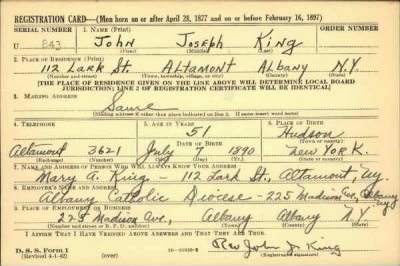 REGISTRATION CARD—(Men born on or after April 28, 1877 and on or before February 16, 1897)
SERIAL NUMBER 1. NAME (Print) ORDER NUMBER
U 843 John Joseph King
(First) (Middle) (Last)
2. PLACE OF RESIDENCE (Print)
112 Lark St. Altamont Albany N.Y.
(Number and street) (Town, township, village, or city) (County) (State)
[THE PLACE OF RESIDENCE GIVEN ON THE LINE ABOVE WILL DETERMINE LOCAL BOARD
JURISDICTION; LINE 2 OF REGISTRATION CERTIFICATE WILL BE IDENTICAL]
3. MAILING ADDRESS
Same
[Mailing address if other than place indicated on line 2. If same insert word same]
4. TELEPHONE 5. AGE IN YEARS 6. PLACE OF BIRTH
51 Hudson
DATE OF BIRTH (Town or county)
Altamont 3621 July 7 1890 New York.
(Exchange) (Number) (Mo.) (Day) (Yr.) (State or country)
7. NAME AND ADDRESS OF PERSON WHO WILL ALWAYS KNOW YOUR ADDRESS
Mary A. King - 112 Lark St., Altamont, N.Y.
8. EMPLOYER'S NAME AND ADDRESS
Albany Catholic Diocese - 225 Madison Ave, Albany
9. PLACE OF EMPLOYMENT OR BUSINESS
225 Madison Ave., Albany Albany N.Y.
(Number and street or R. F. D. number) (Town) (County) (State)
I AFFIRM THAT I HAVE VERIFIED ABOVE ANSWERS AND THAT THEY ARE TRUE.
D. S. S. Form 1
(Revised 4-1-42) (over)
Rev John J. King